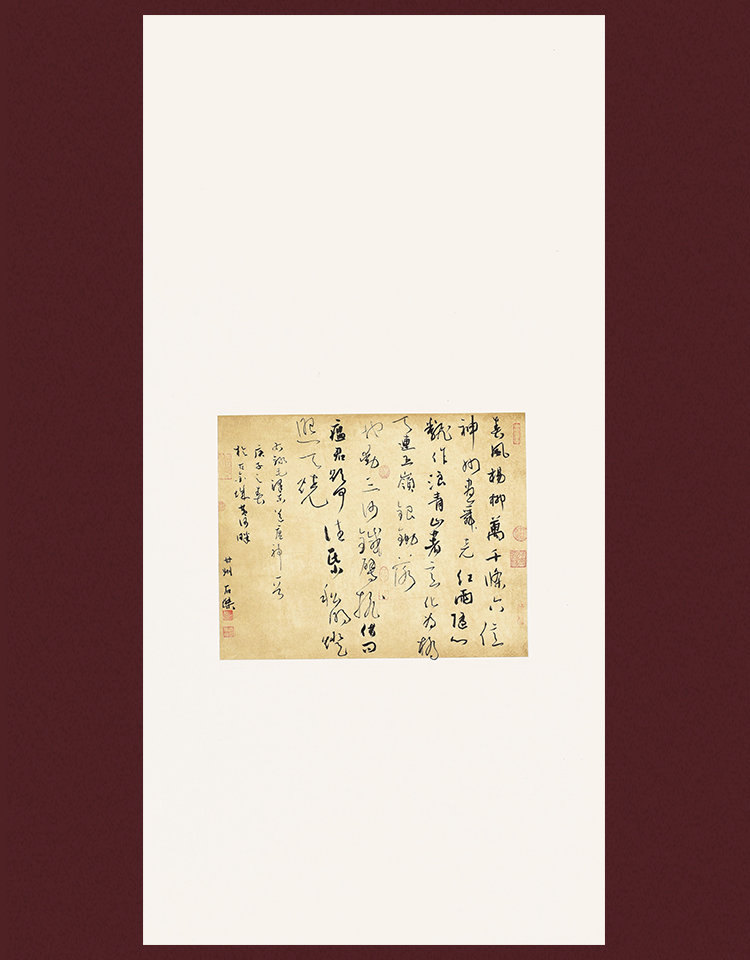 春風楊柳萬千條六億
神州盡舜堯紅雨隨心
翻作浪青山著意化為橋
天連五嶺銀鋤落
地動三河鐵臂搖借問
瘟君欲何往紙船明燭
照天燒
右錄毛澤東送瘟神一首
庚子之春
於古金城黃河畔
甘州石